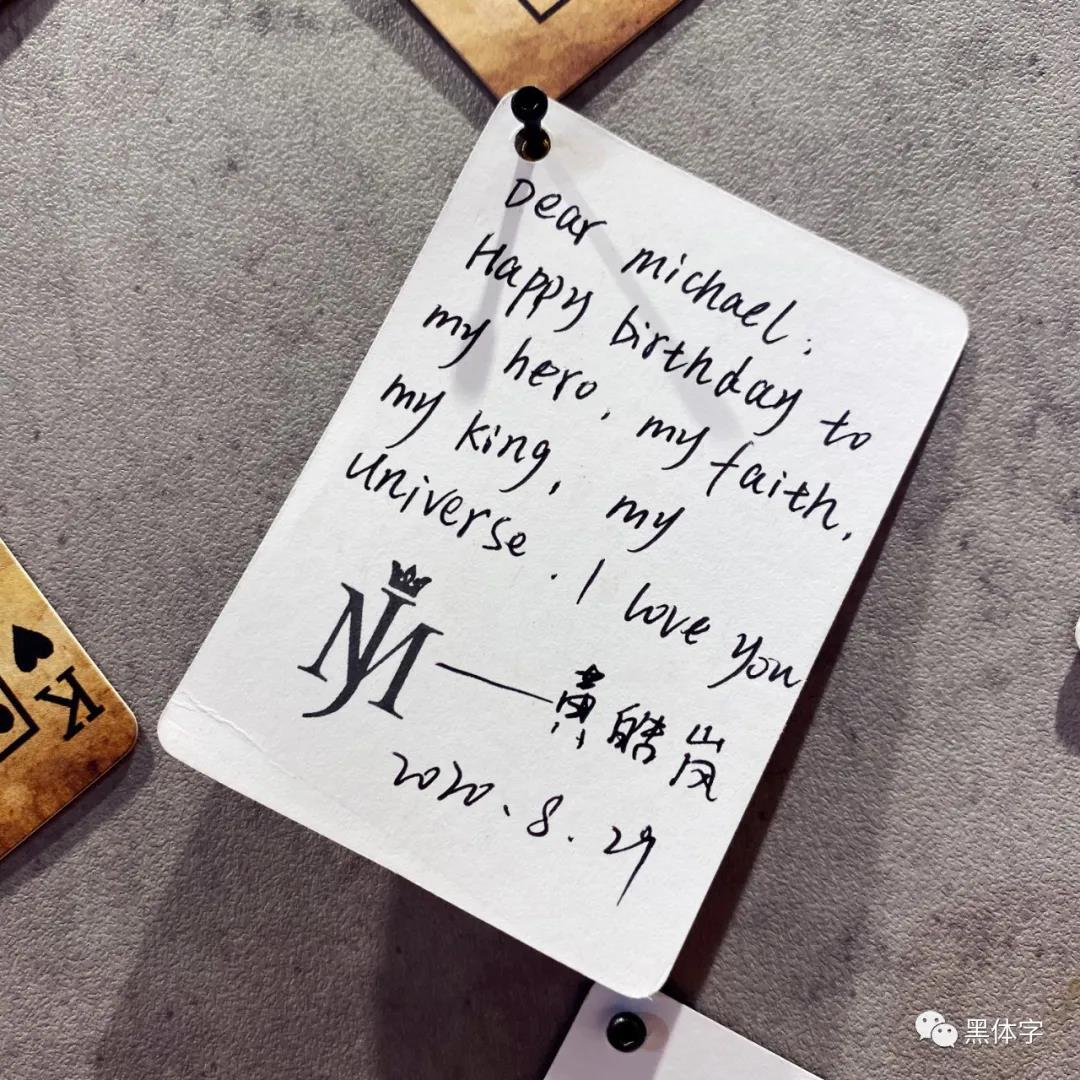 Dear michael:
Happy birthday to
my hero, my faith,
my king, my
universe. I love you
MJ——黄皓岚
2020.8.29
K
黑体字